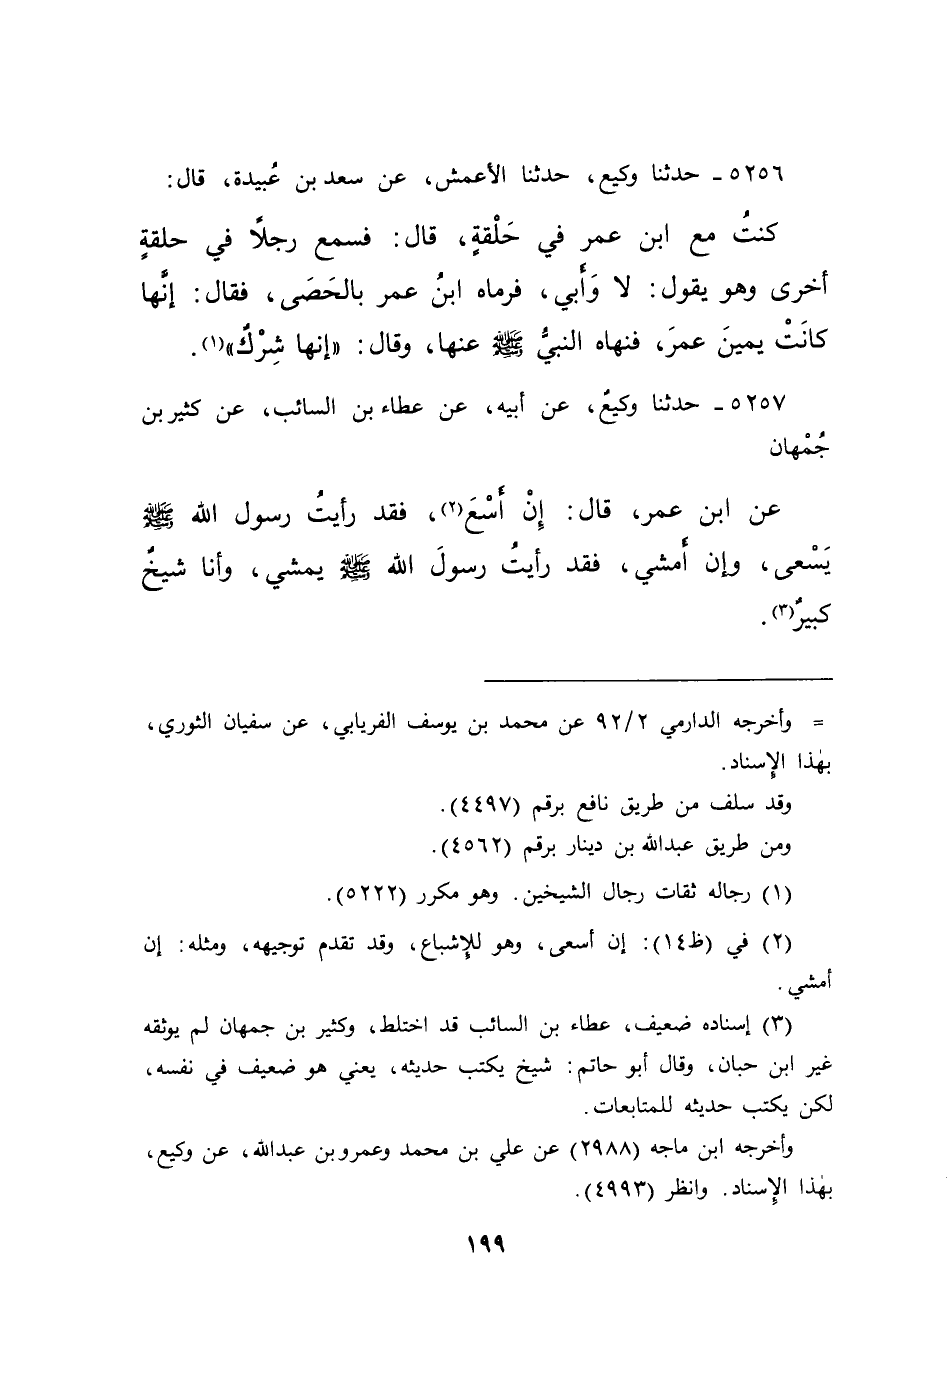 ٥٢٥٦ ـ حدثنا وكيع، حدثنا الأعمش، عن سعد بن عُبيدة، قال:
كنتُ مع ابن عمر في حَلْقةٍ، قال: فسمع رجلاً في حلقةٍ
أُخرى وهو يقول: لا وَأَبي، فرماه ابنُ عمر بالحَصَى، فقال: إنَّها
كانَتْ يمينَ عمرَ، فنهاه النبيُّ ﷺ عنها، وقال: «إنها شِرْكٌ»(١).
٥٢٥٧ ـ حدثنا وكيعٌ، عن أبيه، عن عطاء بن السائب، عن كثير بن
جُمْهان
عن ابن عمر، قال: إِنْ أَسْعَ(٢)، فقد رأيتُ رسول الله ﷺ
يَسْعى، وإن أَمشي، فقد رأيتُ رسولَ الله ﷺ يمشي، وأنا شيخٌ
كبيرٌ(٣).
= وأخرجه الدارمي ٩٢/٢ عن محمد بن يوسف الفريابي، عن سفيان الثوري،
بهٰذا الإسناد.
وقد سلف من طريق نافع برقم (٤٤٩٧).
ومن طريق عبدالله بن دينار برقم (٤٥٦٢).
(١) رجاله ثقات رجال الشيخين. وهو مكرر (٥٢٢٢).
(٢) في (ظ١٤): إن أسعى، وهو للإشباع، وقد تقدم توجيهه، ومثله: إن
أمشي.
(٣) إسناده ضعيف، عطاء بن السائب قد اختلط، وكثير بن جمهان لم يوثقه
غير ابن حبان، وقال أبو حاتم: شيخ يكتب حديثه، يعني هو ضعيف في نفسه،
لكن يكتب حديثه للمتابعات.
وأخرجه ابن ماجه (٢٩٨٨) عن علي بن محمد وعمرو بن عبدالله، عن وكيع،
بهٰذا الإسناد. وانظر (٤٩٩٣).
١٩٩